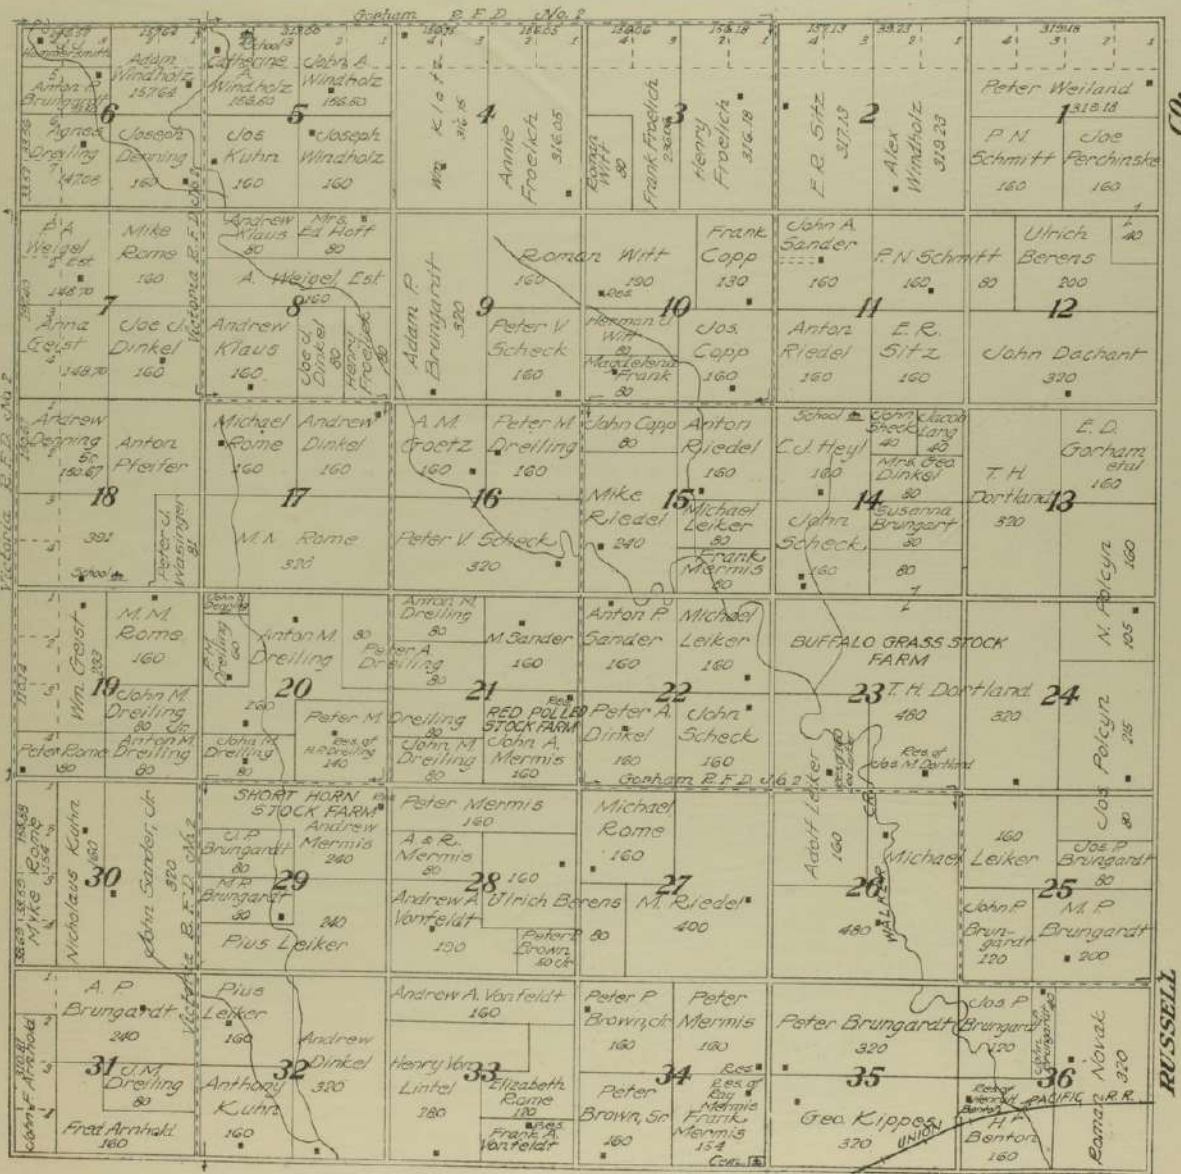 Gorham R.F.D. No. 2
6
Anton P.
Brungardt
Adam
Windholz
157.64
Agnes
Dreiling
147.06
Joseph
Denning
160
5
School
Catherine
A.
Windholz
156.50
John A
Windholz
156.50
Jos
Kuhn
160
Joseph
Windholz
160
4
Wm Klotz
316.15
Annie
Froelich
316.05
3
Roman
Witt
80
Frank Froelich
Henry
Froelich
316.18
2
E.R. Sitz
317.13
Alex
Windholz
319.23
1
Peter Weiland
318.18
P N
Schmitt
160
Joe
Perchinske
160
CO.
7
P A
Weigel
Est
148.70
Mike
Rome
160
Anna
Geist
148.70
Joe J.
Dinkel
160
Victoria R.F.D. No. 2
8
Andrew
Klaus
80
Mrs.
Ed Hoff
80
A. Weigel Est.
160
Andrew
Klaus
160
Joe J.
Dinkel
80
Henry
Froelich
80
9
Adam P.
Brungardt
320
160
Peter V
Scheck
160
10
Roman Witt
190
Res.
Frank
Copp
130
Herman J
Witt
80
Magdelena
Frank
80
Jos.
Copp
160
11
John A.
Sander
160
P.N Schmitt
160
80
Anton
Riedel
160
E. R.
Sitz
160
12
Ulrich
Berens
200
40
John Dachant
320
18
Andrew
Denning
Sr.
150.67
Anton
Pfeifer
391
School
Peter J.
Wasinger
81
17
Michael
Rome
160
Andrew
Dinkel
160
M.N Rome
320
16
A M.
Goetz
160
Peter M
Dreiling
160
Peter V Scheck
320
15
John Copp
80
Anton
Riedel
160
Mike
Riedel
240
Michael
Leiker
80
Frank
Mermis
80
14
School
C.J. Heyl
160
John
Sheck
40
Jacob
Lang
40
Mrs. Geo
Dinkel
80
John
Scheck
160
Susanna
Brungart
80
80
13
T. H.
Dortland
320
E. D.
Gorham
etal
160
N. Polcyn
160
105
Victoria R.F.D. No 2
19
Wm. Geist
233
M. M.
Rome
160
John M.
Dreiling
Jr.
80
Peter Rome
80
Anton M
Dreiling
80
20
P.M.
Dreiling
60
Anton M
Dreiling
80
160
Peter M Dreiling
John M
Dreiling
80
Res. of
140
21
Anton M
Dreiling
80
Peter A
Dreiling
80
M. Sander
160
80
Res.
RED POLLED
STOCK FARM
John M
Dreiling
80
John A.
Mermis
160
22
Anton P.
Sander
160
Michael
Leiker
160
Peter A.
Dinkel
160
John
Scheck
160
Gorham R.F.D. No 2
BUFFALO GRASS STOCK
FARM
23
T. H. Dortland
480
Res. of
Jos M Dortland
24
320
Jos. Polcyn
215
80
30
Myke Rome
154
Nicholaus Kuhn
160
John Sander, Jr
320
Victoria R.F.D. No. 2
29
SHORT HORN
STOCK FARM
Andrew
Mermis
240
J P
Brungardt
80
M P.
Brungardt
80
Pius Leiker
240
28
Peter Mermis
160
A & R.
Mermis
80
160
Andrew A
Vonfeldt
190
Ulrich Berens
80
Peter P
Brown
Jr.
27
Michael
Rome
160
M. Riedel
400
26
Adolf Leiker
160
480
WALKER CR.
Michael Leiker
160
25
Jos P
Brungardt
80
John P.
Brun-
gardt
120
M. P.
Brungardt
200
31
A. P.
Brungardt
240
John F. Arnhold
J.M.
Dreiling
80
Fred Arnhold
160
32
Pius
Leiker
160
Anthony
Kuhn
160
Andrew
Dinkel
320
33
Andrew A. Vonfeldt
160
Henry Von
Lintel
280
Elizabeth
Rome
120
Res.
Frank A.
Vonfeldt
34
Peter P
Brown, Jr.
160
Peter
Mermis
160
Res.
Peter
Brown, Sr.
160
Res. of
Ray
Mermis
Frank
Mermis
154
Cem.
35
Peter Brungardt
320
Geo. Kippes
320
36
Jos. P
Brungardt
120
John
Brungardt
40
H.
Benton
160
Roman Novak
320
UNION PACIFIC R.R.
RUSSELL